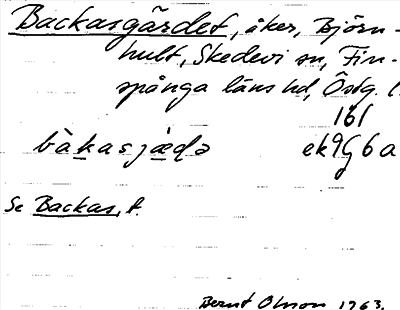 Backasgärdet, åker, Björn-
hult, Skedevi sn, Fin-
spånga läns hd, Östg. l.
161
bàkasjædə ek9G6a
Se Backas, t.
Bernt Olsson 1963.